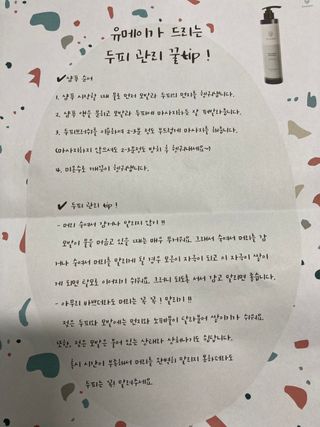 유메이가 드리는
두피 관리 꿀tip !
✓ 샴푸 순서
1. 샴푸 시작할 때 물로 먼저 모발과 두피의 먼지를 헹궈냅니다.
2. 샴푸 액을 묻히고 모발과 두피에 마사지하듯 잘 펴발라줍니다.
3. 두피브러쉬를 이용하여 2-3분 정도 부드럽게 마사지를 해줍니다.
(마사지하지 않으셔도 2-3분정도 방치 후 헹궈내세요~)
4. 미온수로 깨끗이 헹궈냅니다.
✓ 두피 관리 tip !
- 머리 숙여서 감거나 말리지 않기 !!
모발이 물을 머금고 있을 때는 매우 무거워요. 그래서 숙여서 머리를 감
거나 숙여서 머리를 말리게 될 경우 모근이 자극이 되고 이 자극이 쌓이
게 되면 탈모로 이어지기 쉬워요. 그러니 되도록 서서 감고 말리면 좋습니다.
- 아무리 바쁘더라도 머리는 꼭 꼭 ! 말리기 !!
젖은 두피와 모발에는 먼지와 노폐물이 달라붙어 쌓이기가 쉬워요.
또한, 젖은 모발은 불어 있는 상태라 상하기도 쉽답니다.
혹시 시간이 부족해서 머리를 완벽히 말리지 못하더라도
두피는 꼭! 말려주세요.